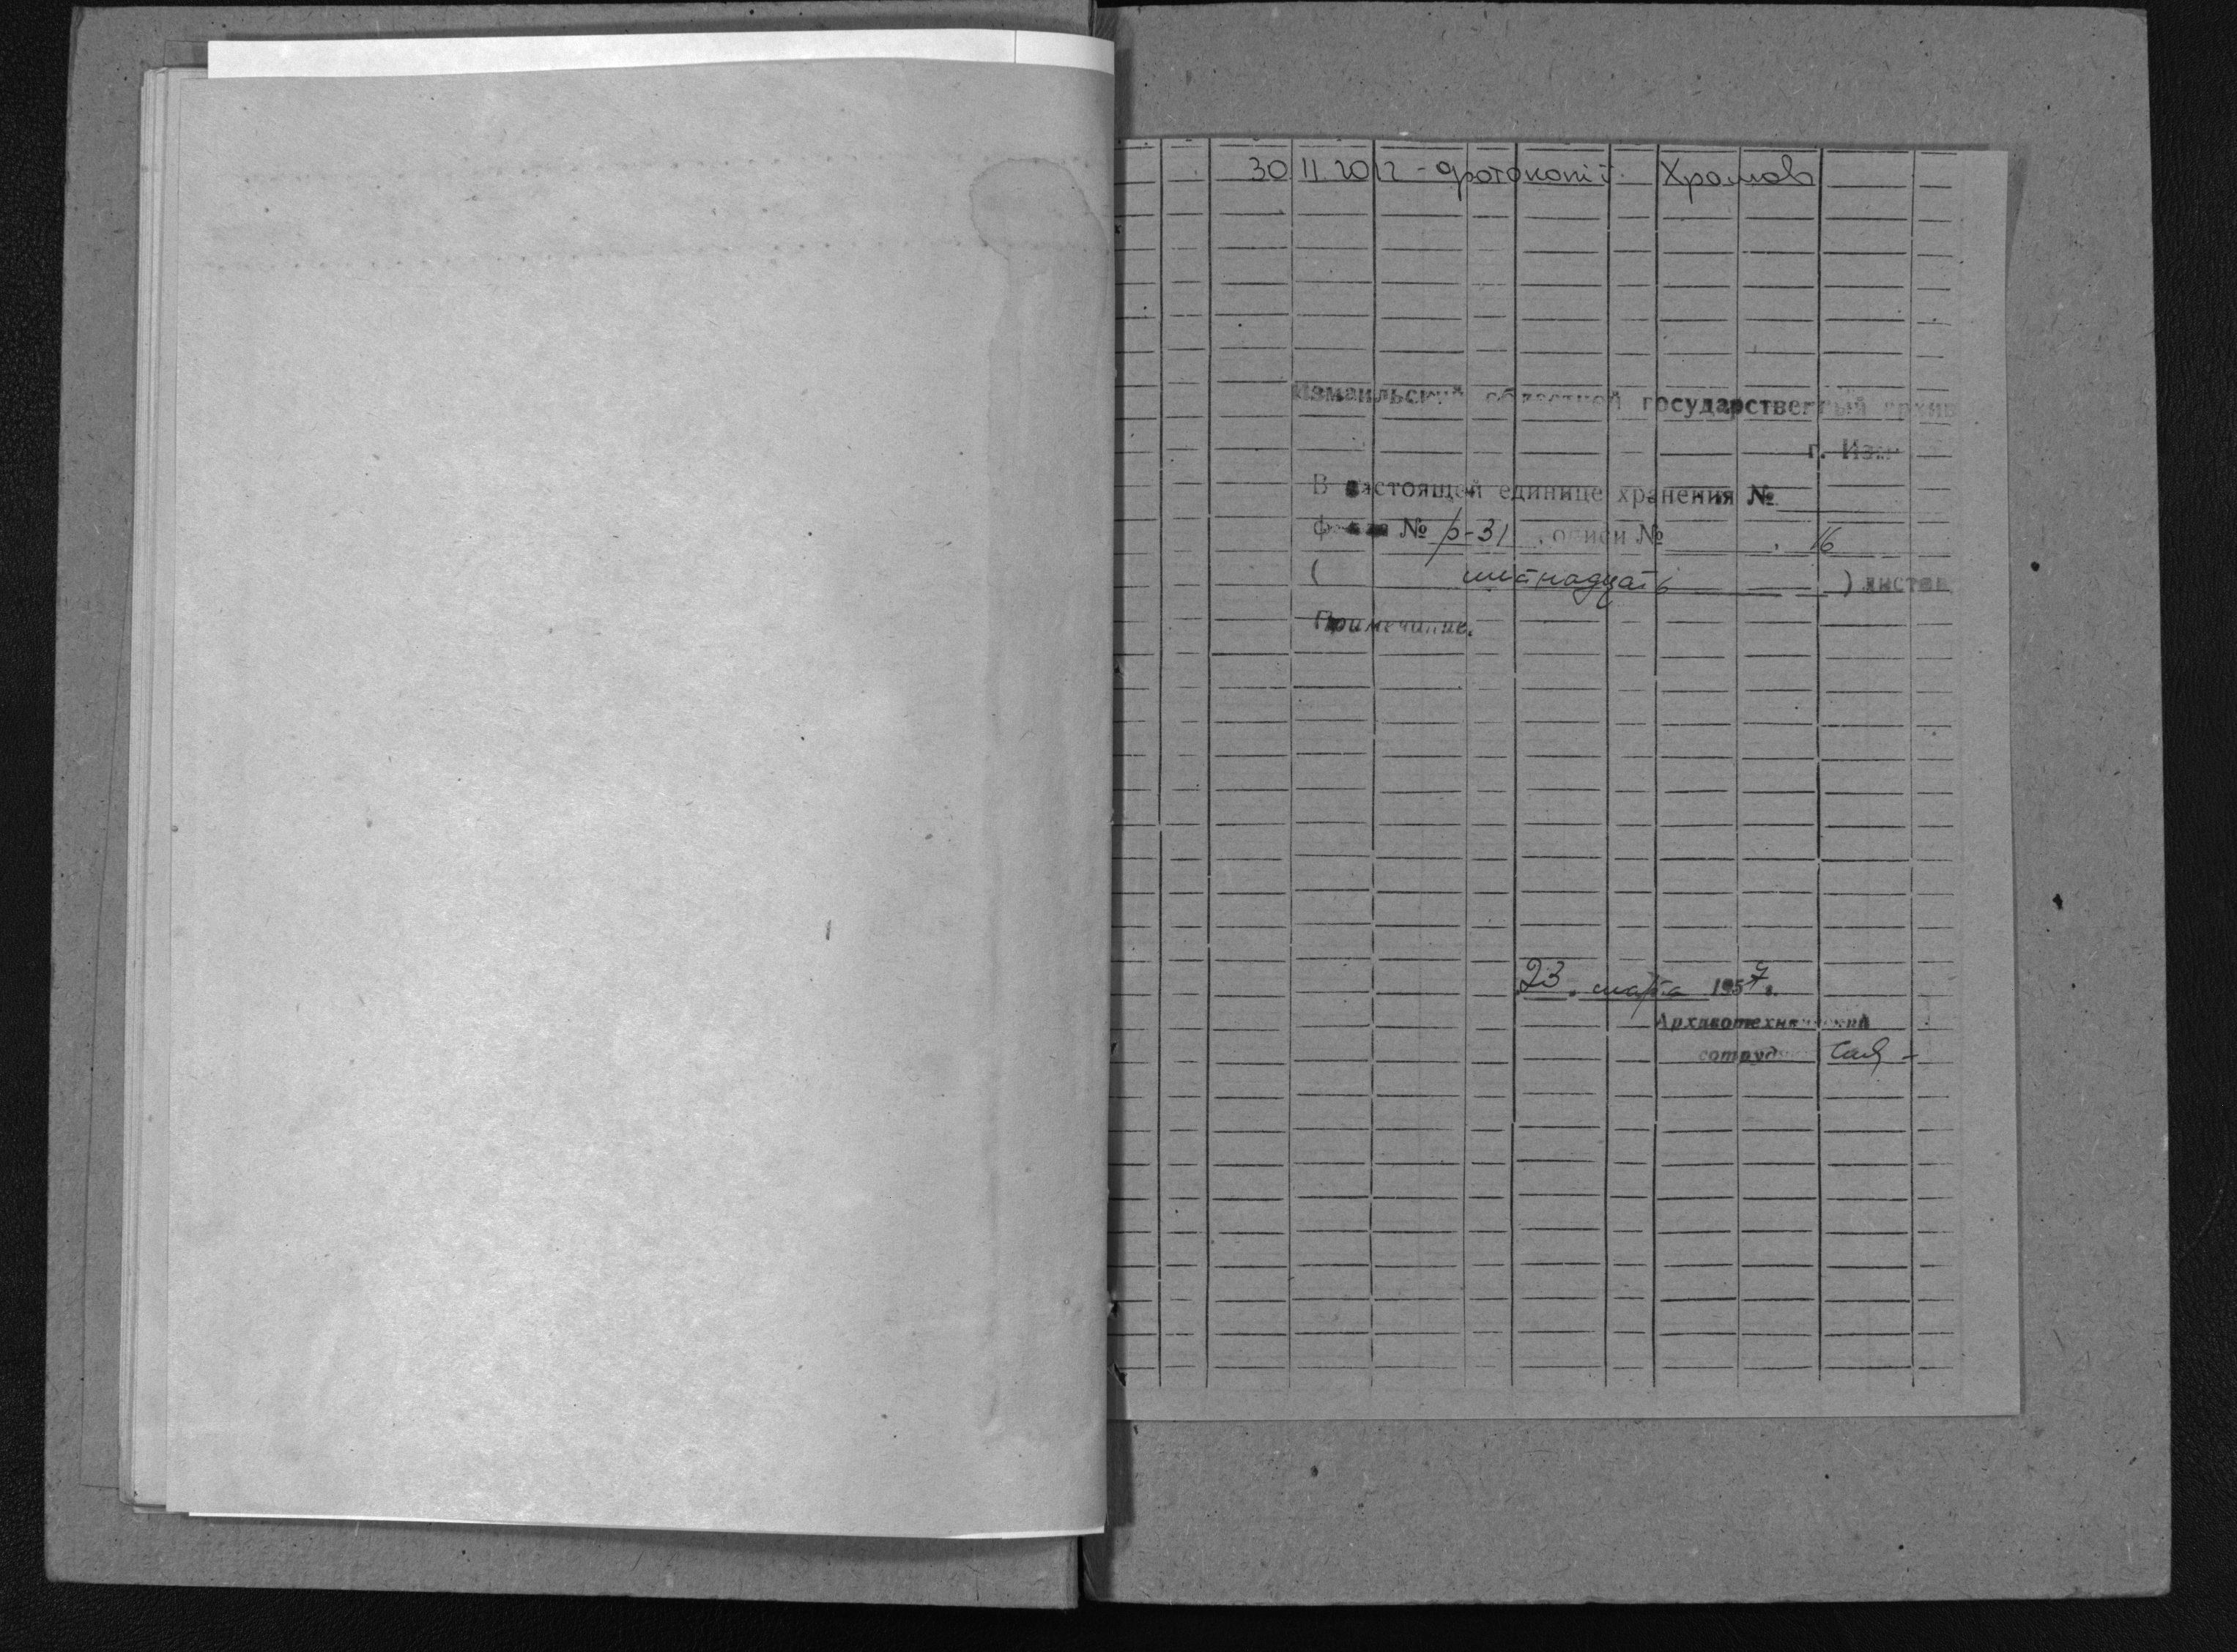 30.11.2012 - фотокопії Хромов
Измаильский областной государственный архив
г. Изм
В настоящей единице хранения №
фонда № р-31, описи № , 16
( шестнадцать ) листов
Примечание.
23 марта 1957 г.
Архивотехнический
сотрудн